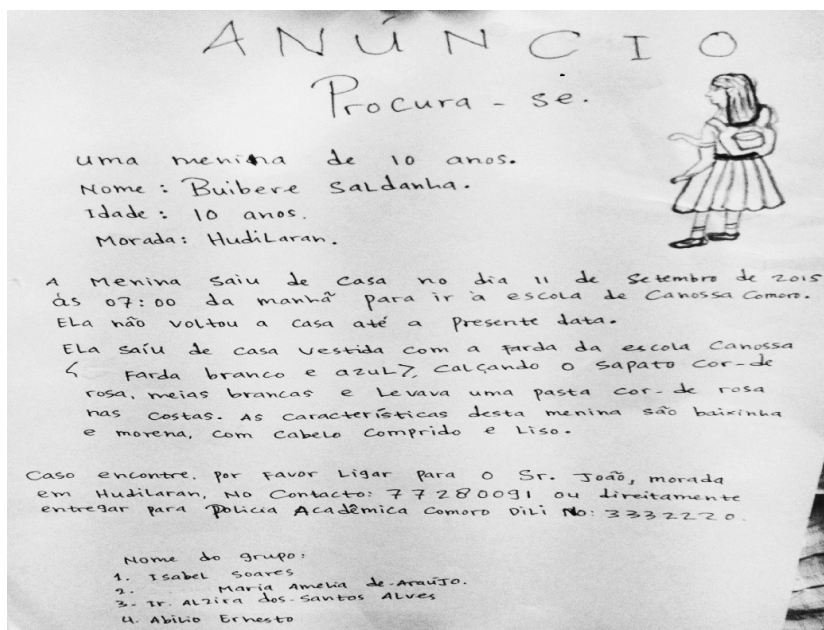 ANÚNCIO
Procura-se.
uma menina de 10 anos.
Nome: Buibere Saldanha.
Idade: 10 anos.
Morada: Hudilaran.
A Menina saiu de casa no dia 11 de Setembro de 2015
ás 07:00 da manhã para ir à escola de Canossa Comoro.
Ela não voltou a casa até a presente data.
Ela saíu de casa vestida com a farda da escola Canossa
< Farda branco e azul>, calçando o sapato cor-de
rosa, meias brancas e levava uma pasta cor-de rosa
nas costas. As características desta menina são baixinha
e morena, com cabelo comprido e liso.
Caso encontre, por favor ligar para o Sr. João, morada
em Hudilaran, No Contacto: 77280091 ou direitamente
entregar para Polícia Acadêmica Comoro Dili No: 3332220.
Nome do grupo:
1. Isabel Soares
2. Maria Amelia de-Araújo.
3- Ir. Alzira dos-Santos Alves
4. Abilio Ernesto